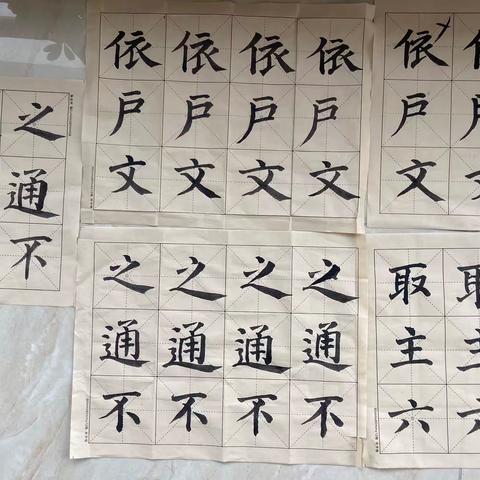 之
通
不
依依依依
戶戶戶戶
文文文文
依
戶
文
之之之之
通通通通
不不不不
取
主
六